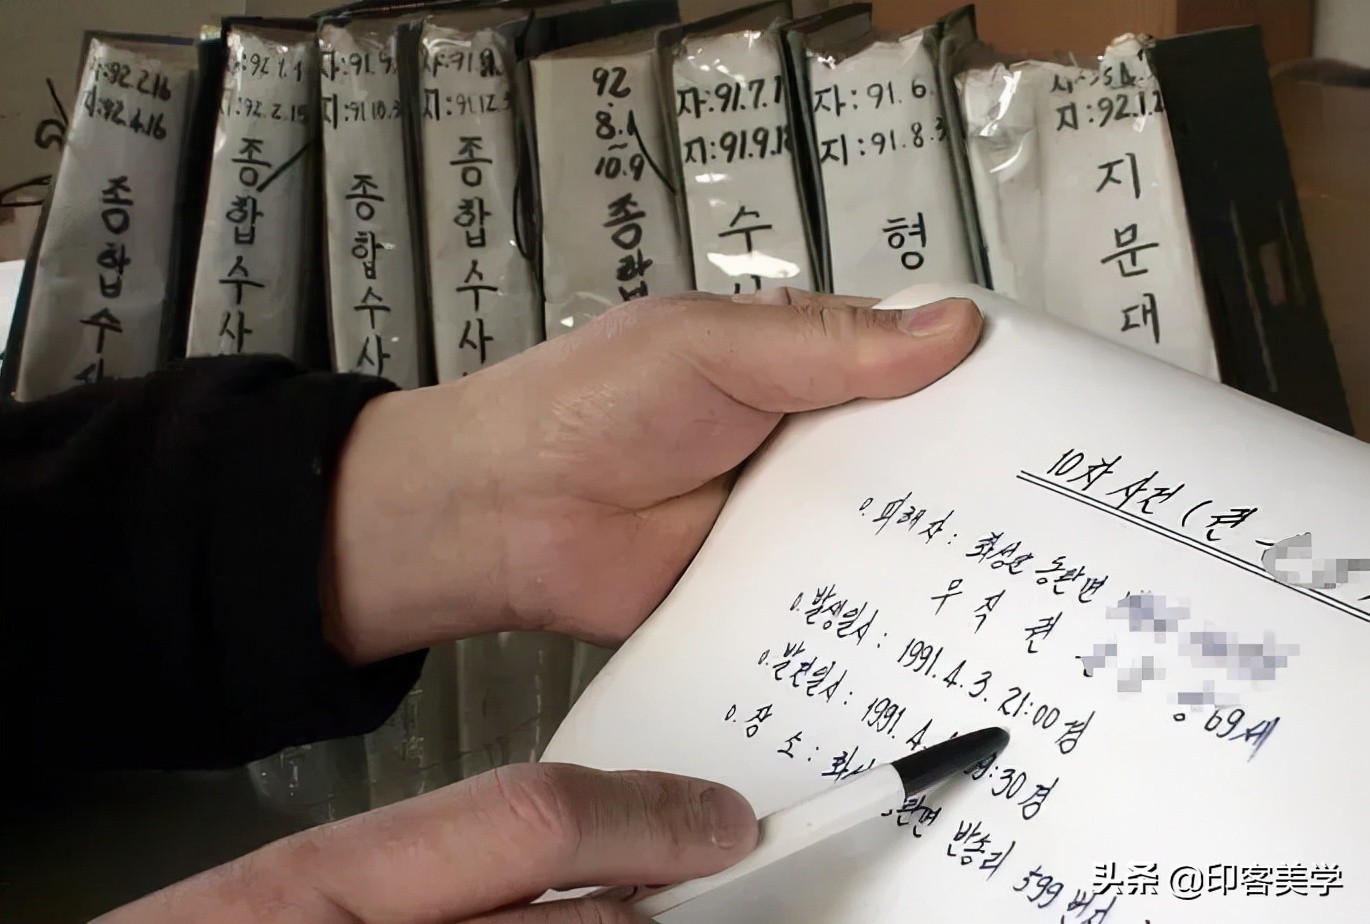 자:92.2.16
지:92.4.16
종합수사
지:92.2.15
종합수사
지:91.10.3
종합수사
종합수사
92.
8.1
~
10.9
종합
자:91.7.1
지:91.9.1
수
자:91.6.
지:91.8.3
형
지:92.1.2
지문대
10차 사건 (권
o. 피해자: 화성군 동탄면
무직 권 69세
o. 발생일시: 1991. 4. 3. 21:00경
o. 발견일시: 1991. 4. 9:30경
o. 장소: 화성 탄면 반송리 599번지
头条 @印客美学